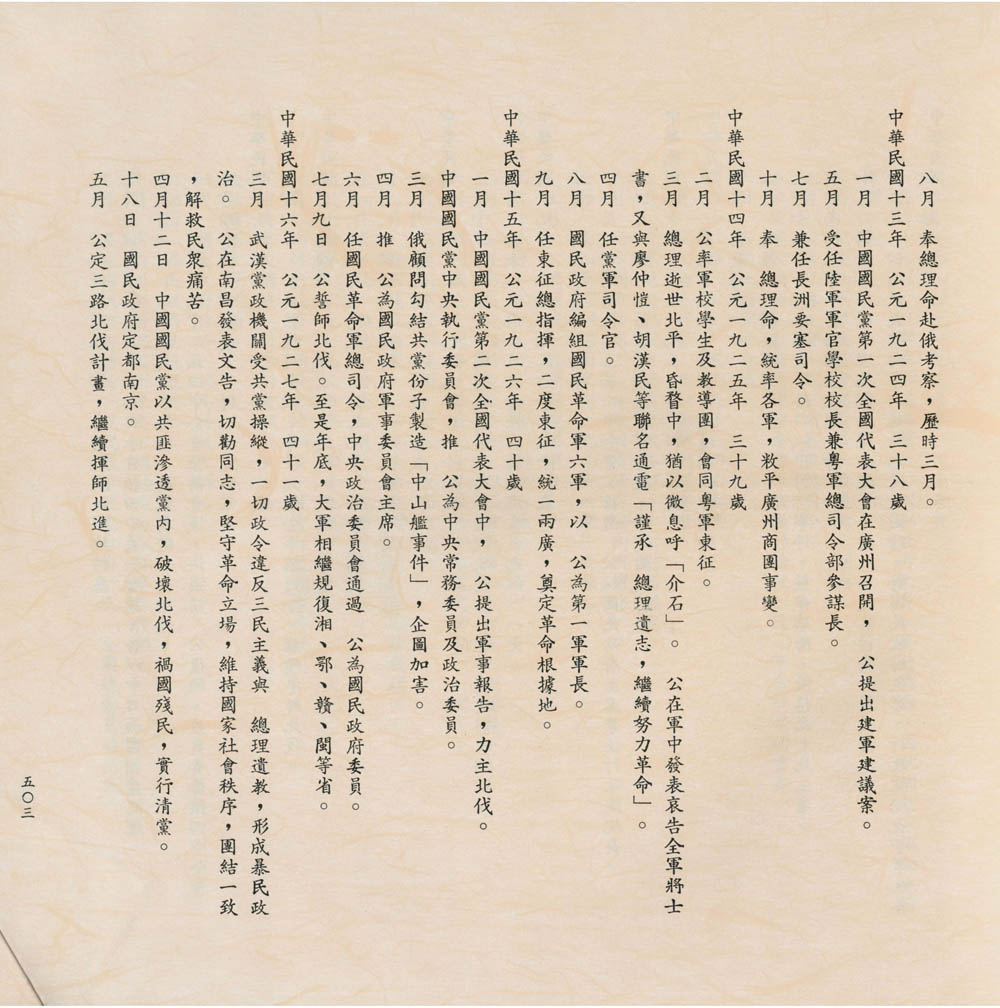 八月　奉總理命赴俄考察，歷時三月。
中華民國十三年　公元一九二四年　三十八歲
一月　中國國民黨第一次全國代表大會在廣州召開，　公提出建軍建議案。
五月　受任陸軍軍官學校校長兼粵軍總司令部參謀長。
七月　兼任長洲要塞司令。
十月　奉　總理命，統率各軍，敉平廣州商團事變。
中華民國十四年　公元一九二五年　三十九歲
二月　公率軍校學生及教導團，會同粵軍東征。
三月　總理逝世北平，昏瞀中，猶以微息呼「介石」。　公在軍中發表哀告全軍將士
書，又與廖仲愷、胡漢民等聯名通電「謹承　總理遺志，繼續努力革命」。
四月　任黨軍司令官。
八月　國民政府編組國民革命軍六軍，以　公為第一軍軍長。
九月　任東征總指揮，二度東征，統一兩廣，奠定革命根據地。
中華民國十五年　公元一九二六年　四十歲
一月　中國國民黨第二次全國代表大會中，　公提出軍事報告，力主北伐。
中國國民黨中央執行委員會，推　公為中央常務委員及政治委員。
三月　俄顧問勾結共黨份子製造「中山艦事件」，企圖加害。
四月　推　公為國民政府軍事委員會主席。
六月　任國民革命軍總司令，中央政治委員會通過　公為國民政府委員。
七月九日　公誓師北伐。至是年底，大軍相繼規復湘、鄂、贛、閩等省。
中華民國十六年　公元一九二七年　四十一歲
三月　武漢黨政機關受共黨操縱，一切政令違反三民主義與　總理遺教，形成暴民政
治。　公在南昌發表文告，切勸同志，堅守革命立場，維持國家社會秩序，團結一致
，解救民眾痛苦。
四月十二日　中國國民黨以共匪滲透黨內，破壞北伐，禍國殘民，實行清黨。
十八日　國民政府定都南京。
五月　公定三路北伐計畫，繼續揮師北進。
五〇三